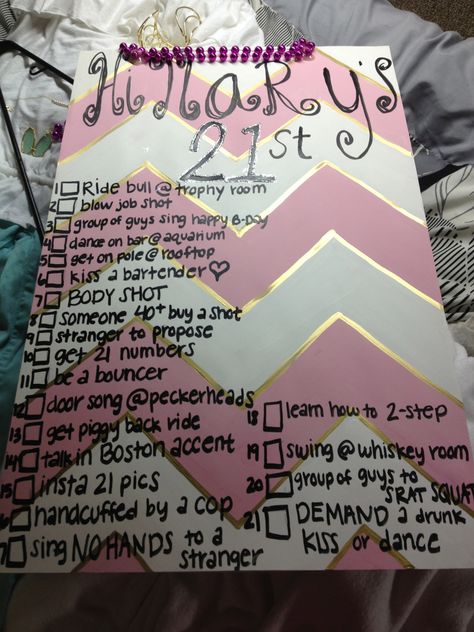 HiLLaRy's
21st
1 Ride bull @ trophy room
2 blow job shot
3 group of guys sing happy B-Day
4 dance on bar @ aquarium
5 get on pole @ rooftop
6 kiss a bartender ♡
7 BODY SHOT
8 Someone 40+ buy a shot
9 stranger to propose
10 get 21 numbers
11 be a bouncer
12 door song @ peckerheads
13 get piggy back ride
14 talk in Boston accent
15 insta 21 pics
16 handcuffed by a cop
17 sing NO HANDS to a
stranger
18 learn how to 2-step
19 swing @ whiskey room
20 group of guys to
SRAT SQUAT
21 DEMAND a drunk
KISS or dance